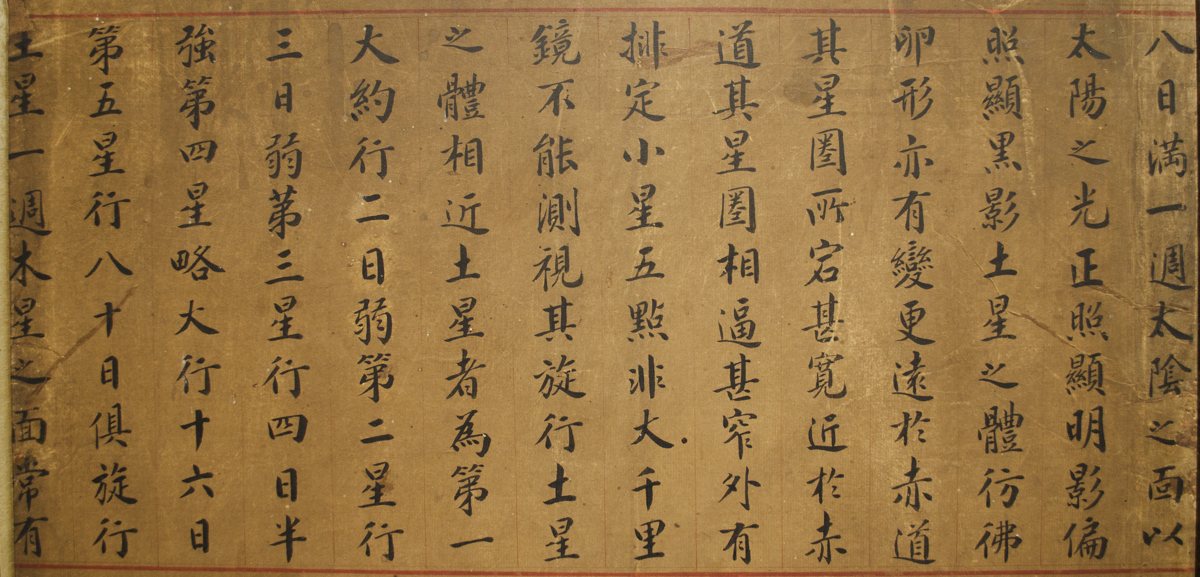 八日满一週太陰之面以
太陽之光正照顯明影偏
照顯黑影土星之體彷彿
卵形亦有變更遠於赤道
其星圈所宕甚寛近於赤
道其星圈相逼甚窄外有
排定小星五點非大千里
鏡不能測視其旋行土星
之體相近土星者為第一
大約行二日弱第二星行
三日弱第三星行四日半
強第四星略大行十六日
第五星行八十日俱旋行
土星一週木星之面常有